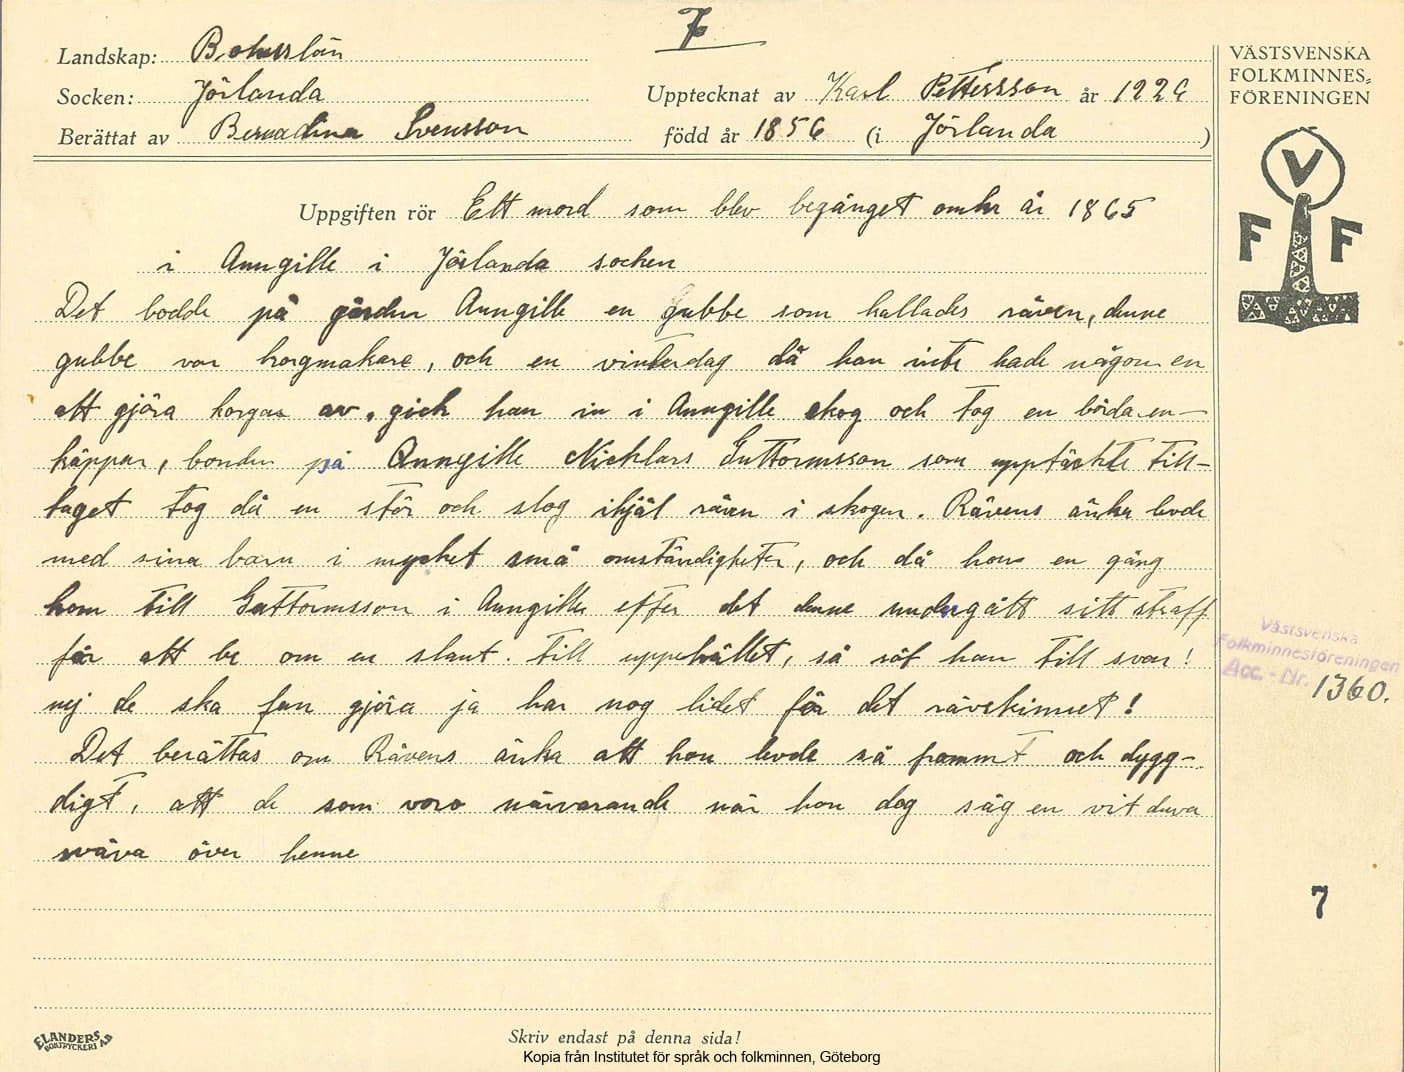 7
Landskap: Bohuslän
Socken: Jörlanda
Upptecknat av Karl Pettersson år 1926
Berättat av Bernadina Svensson
född år 1856 (i Jörlanda )
VÄSTSVENSKA
FOLKMINNES-
FÖRENINGEN
V
F F
Uppgiften rör Ett mord som blev begånget omkr år 1865
i Anngille i Jörlanda socken
Det bodde på gården Anngille en gubbe som kallades räven, denne
gubbe var korgmakare, och en vinterdag då han inte hade någon en
att gjöra korgar av, gick han in i Anngille skog och tog en börda en-
käppar, bonden på Anngille Nicklars Guttormsson som upptäckte till-
taget tog då en stör och slog ihjäl räven i skogen. Rävens änka levde
med sina barn i mycket små omständigheter, och då hon en gång
kom till Guttormsson i Anngille efter det denne undergått sitt straff
för att be om en slant till uppehället, så röt han till svar!
nej de ska fan gjöra ja har nog lidet för det rävskinnet!
Det berättas om Rävens änka att hon levde så frommt och dygg-
digt, att de som voro närvarande när hon dog såg en vit duva
sväva över henne
Västsvenska
Folkminnesföreningen
Acc. - Nr. 1360.
7
ELANDERS
BOKTRYCKERI A.B
Skriv endast på denna sida!
Kopia från Institutet för språk och folkminnen, Göteborg